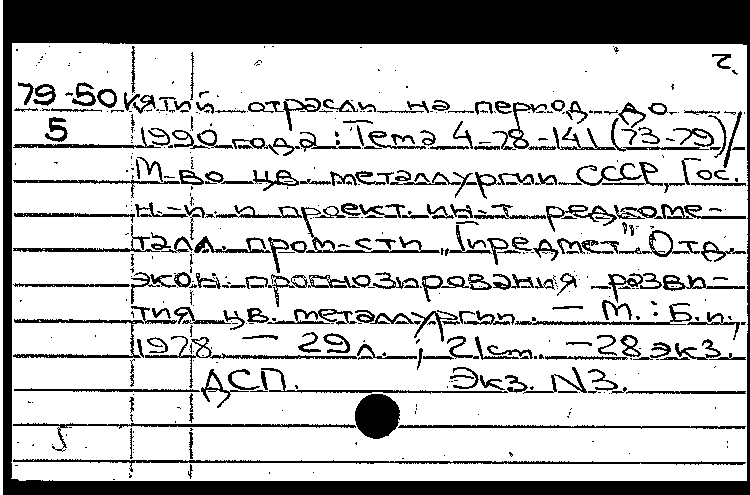 2.
79-50 кятий отрасли на период до
5 1990 года : Тема 4-78-141 (73-79) /
М-во цв. металлургии СССР, Гос.
н.-и. и проект. ин-т редкоме-
талл. пром-сти „Гиредмет". Отд.
экон. прогнозирования разви-
тия цв. металлургии. — М. : Б.и.,
1978. — 29л. ; 21ст. — 28 экз.
ДСП. Экз. N3.
5